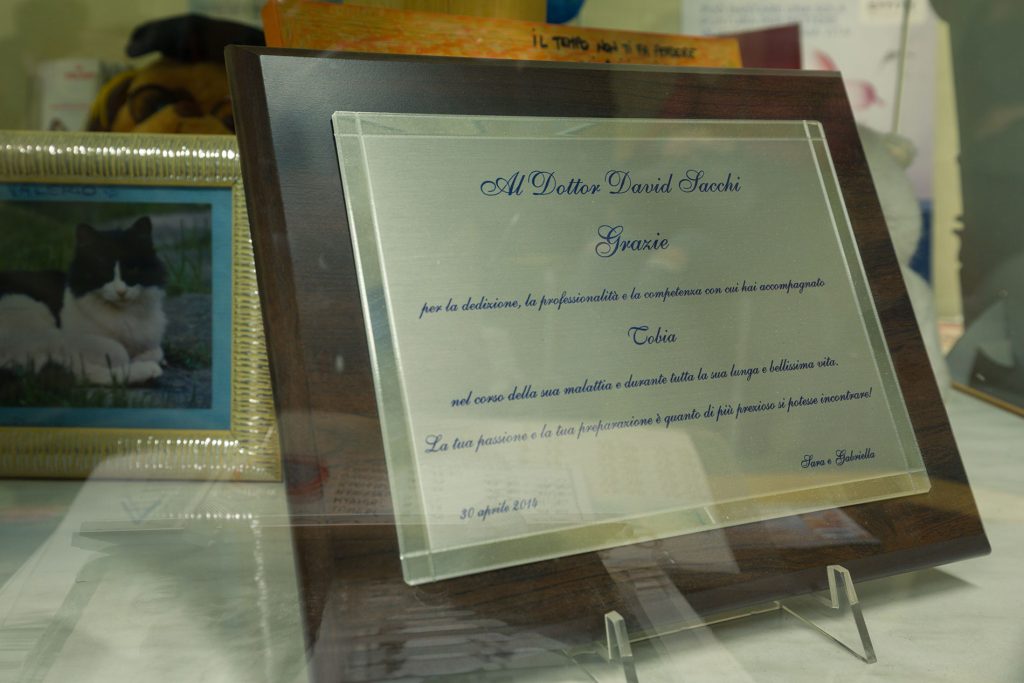 IL TEMPO NON TI FA PERDERE
VALERIO
Al Dottor David Sacchi
Grazie
per la dedizione, la professionalità e la competenza con cui hai accompagnato
Tobia
nel corso della sua malattia e durante tutta la sua lunga e bellissima vita.
La tua passione e la tua preparazione è quanto di più prexioso si potesse incontrare!
Sara e Gabriella
30 aprile 2014